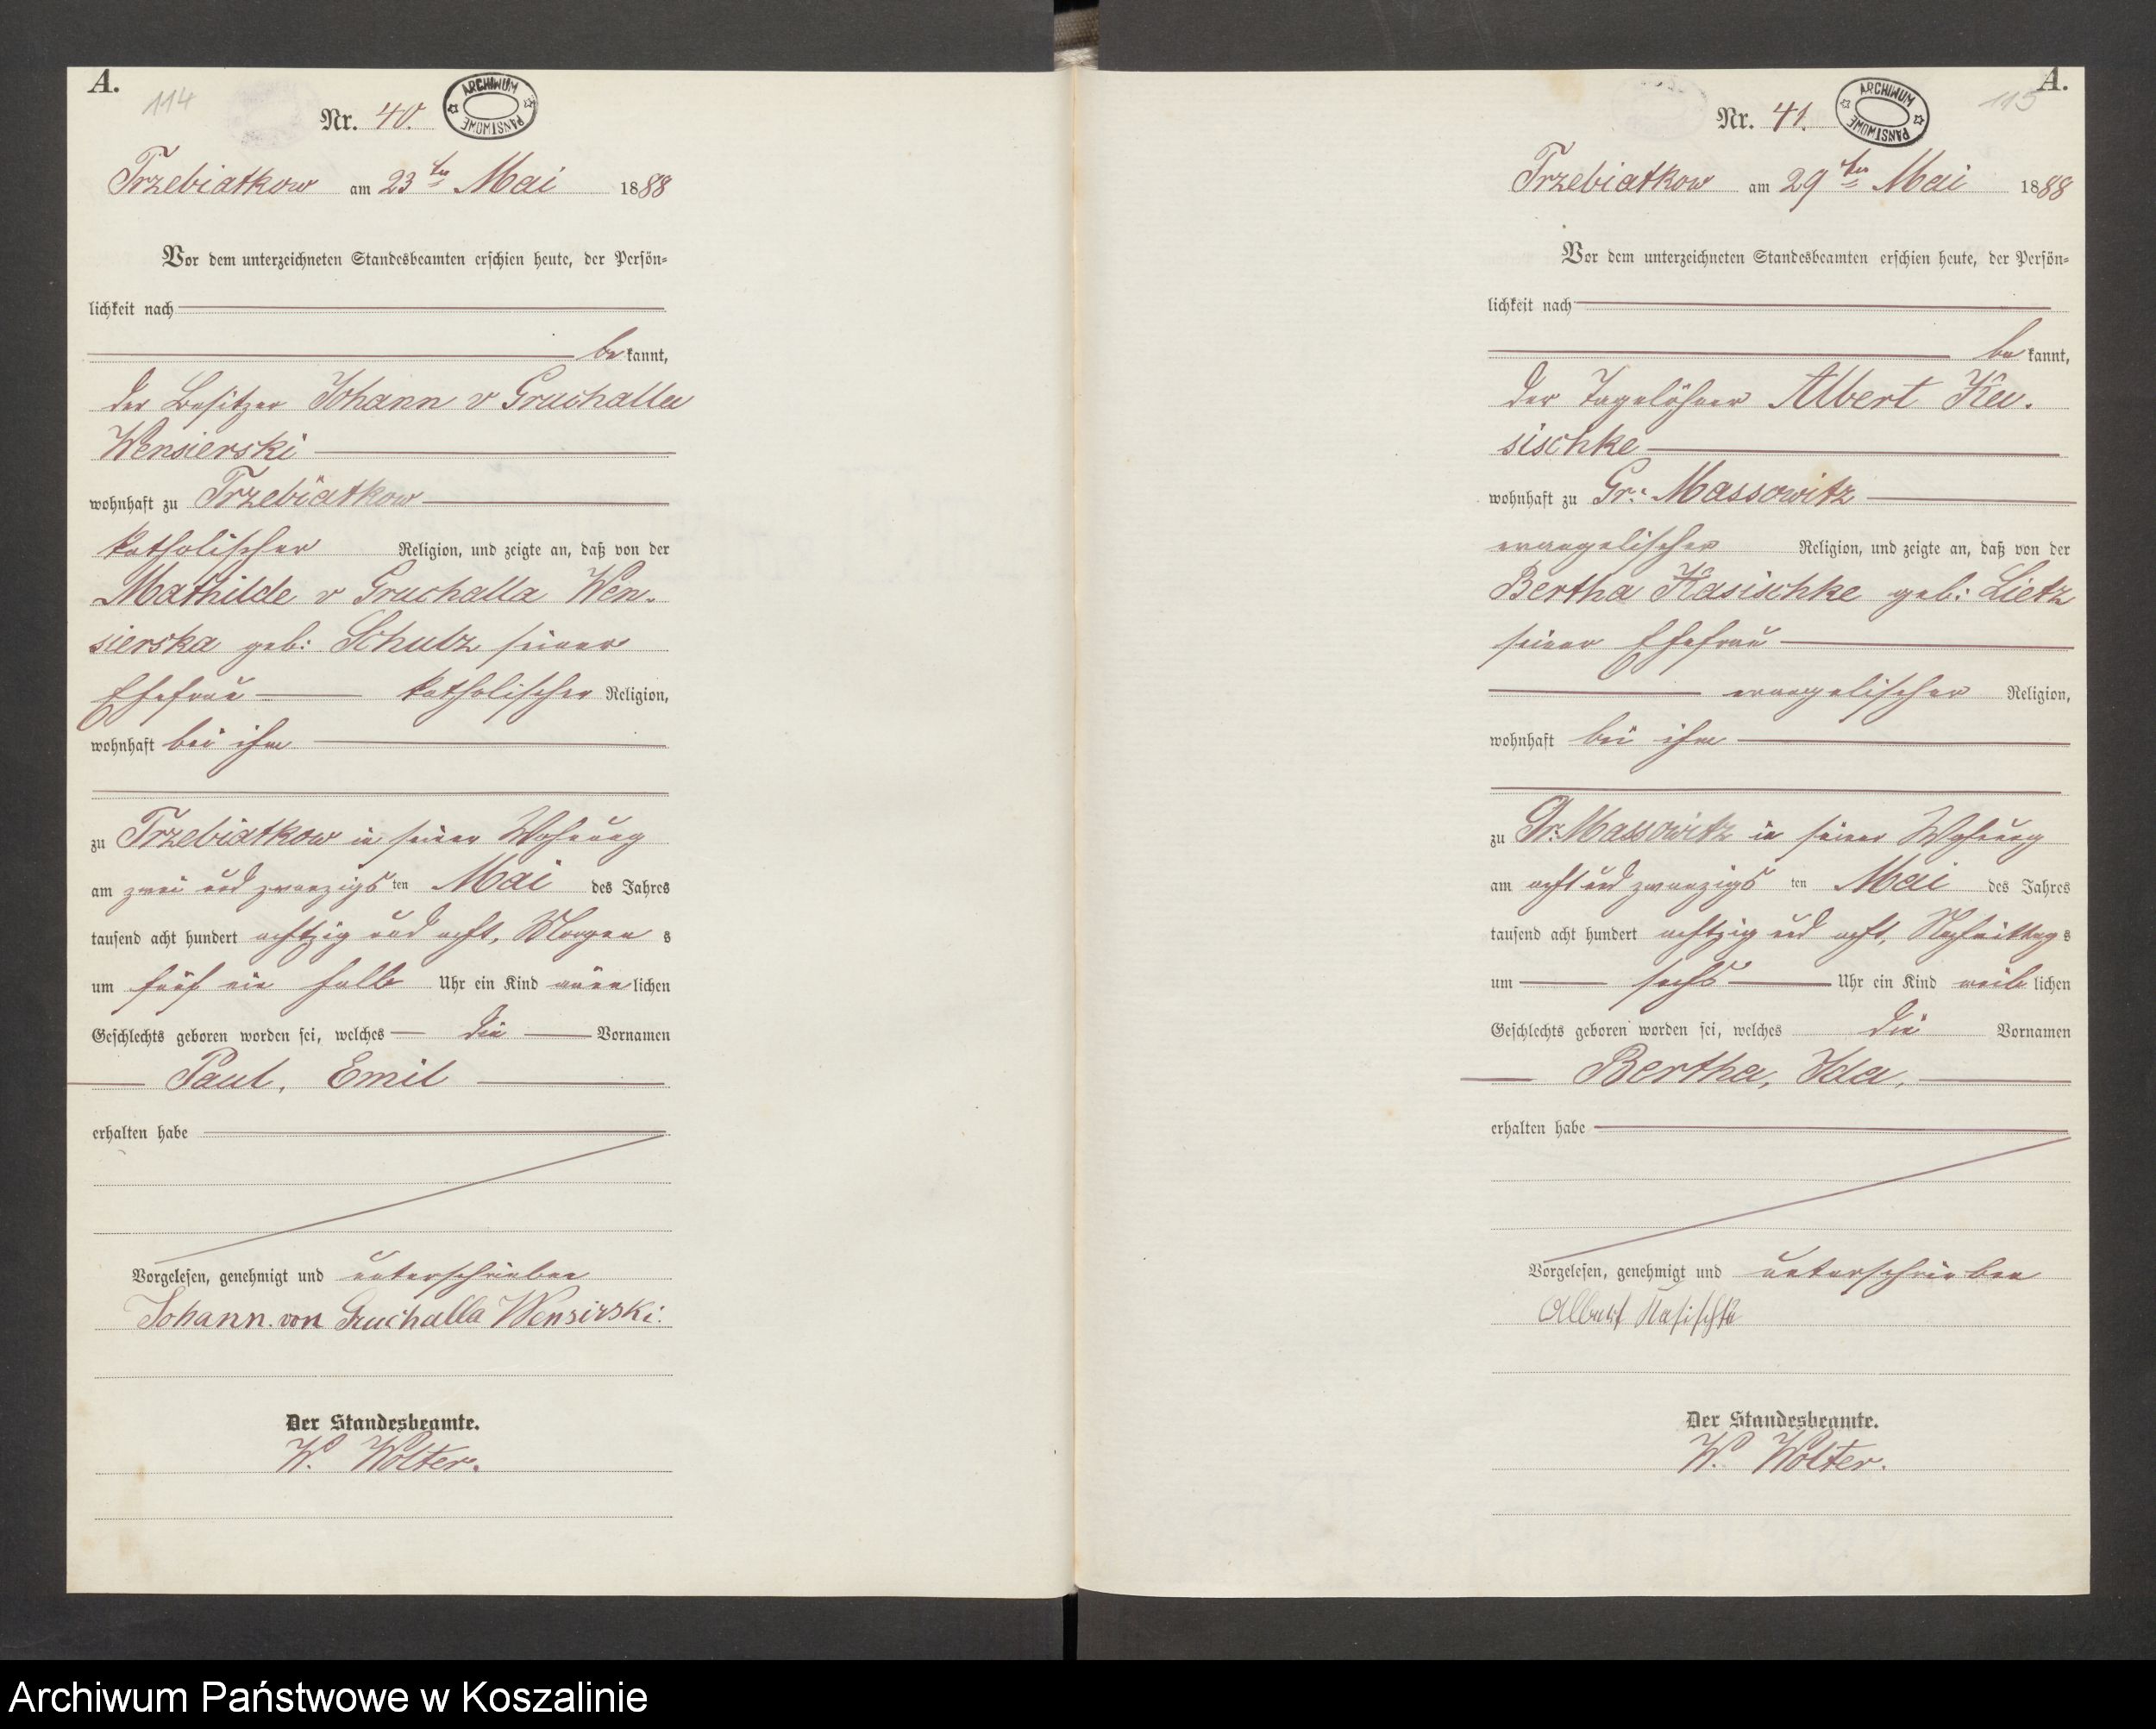 A.
114
Nr. 40.
ARCHIWUM PAŃSTWOWE
Trzebiatkow am 23ten Mai 1888
Vor dem unterzeichneten Standesbeamten erschien heute, der Persön-
lichkeit nach
be kannt,
der Besitzer Johann v Gruchalla
Wensierski
wohnhaft zu Trzebiatkow
katholischer Religion, und zeigte an, daß von der
Mathilde v Gruchalla Wen-
sierska geb: Schulz seiner
Ehefrau katholischer Religion,
wohnhaft bei ihm
zu Trzebiatkow in seiner Wohnung
am zwei und zwanzigsten Mai des Jahres
tausend acht hundert achtzig und acht, Morgens
um fünf ein halb Uhr ein Kind männlichen
Geschlechts geboren worden sei, welches die Vornamen
Paul, Emil
erhalten habe
Vorgelesen, genehmigt und unterschrieben
Johann. von Gruchalla Wensirski.
Der Standesbeamte.
W. Wolter.
A.
115
Nr. 41.
ARCHIWUM PAŃSTWOWE
Trzebiatkow am 29ten Mai 1888
Vor dem unterzeichneten Standesbeamten erschien heute, der Persön-
lichkeit nach
be kannt,
der Tagelöhner Albert Ka-
sischke
wohnhaft zu Gr: Massowitz
evangelischer Religion, und zeigte an, daß von der
Bertha Kasischke geb: Lietz
seiner Ehefrau
evangelischer Religion,
wohnhaft bei ihm
zu Gr: Massowitz in seiner Wohnung
am acht und zwanzigsten Mai des Jahres
tausend acht hundert achtzig und acht, Nachmittags
um sechs Uhr ein Kind weiblichen
Geschlechts geboren worden sei, welches die Vornamen
Bertha, Ida,
erhalten habe
Vorgelesen, genehmigt und unterschrieben
Albert Kasischke
Der Standesbeamte.
W. Wolter.
Archiwum Państwowe w Koszalinie